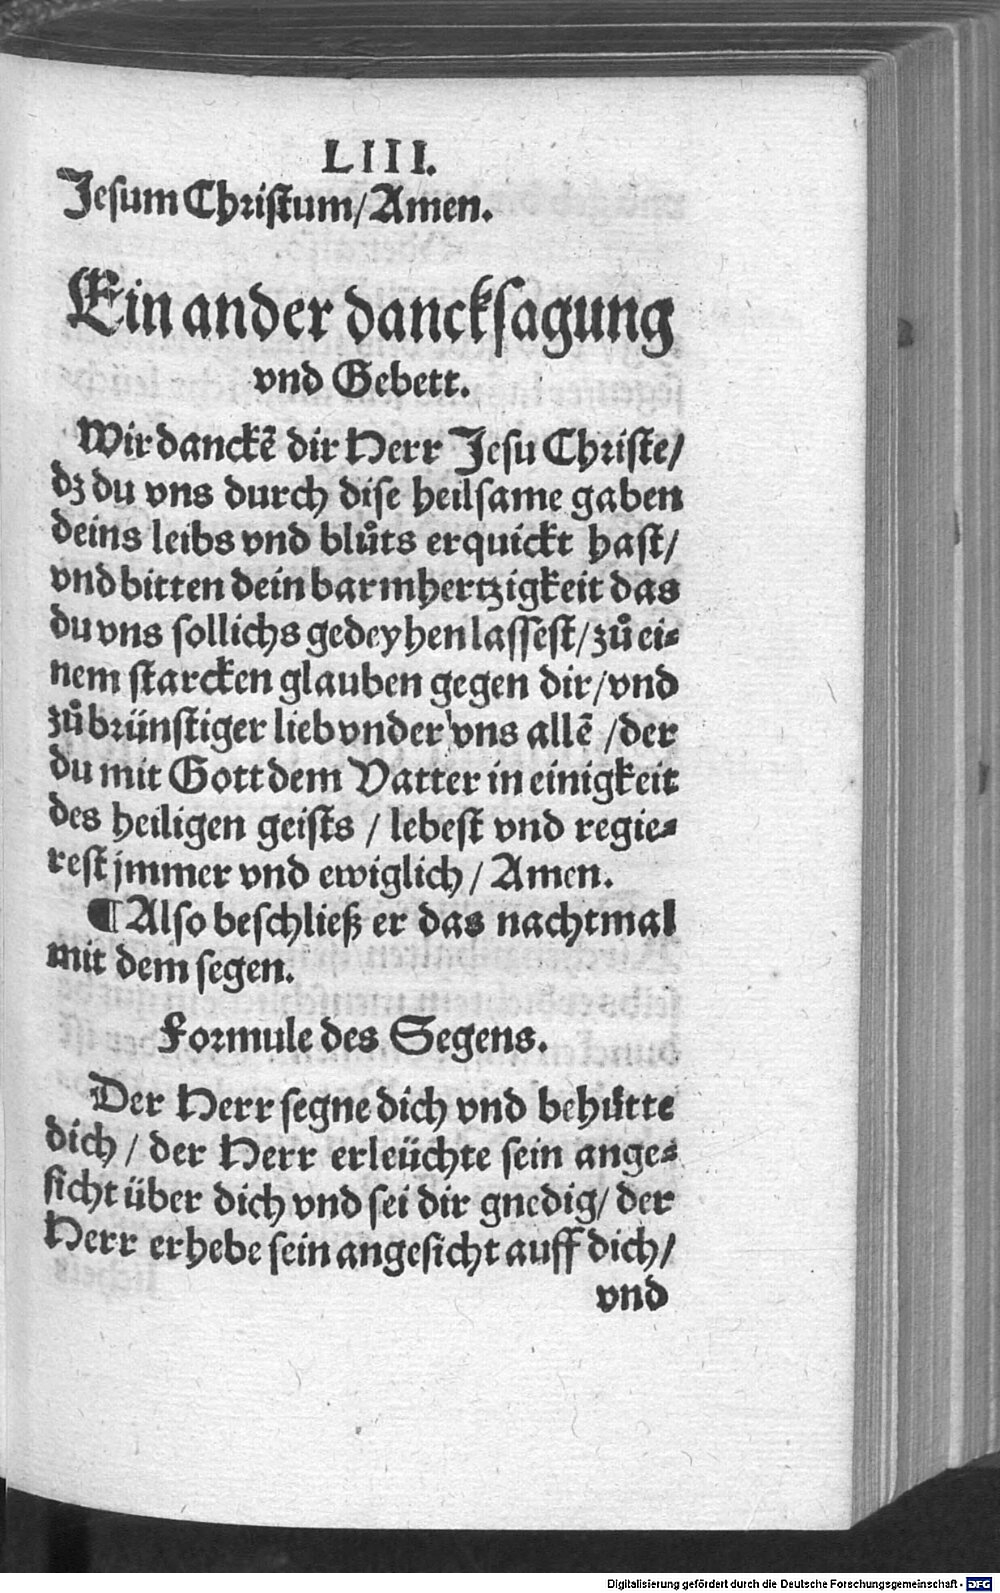 LIII.
Jesum Christum/ Amen.
Ein ander dancksagung
vnd Gebett.
Wir danckẽ dir Herr Jesu Christe/
dz du vns durch dise heilsame gaben
deins leibs vnd blůts erquickt hast/
vnd bitten dein barmhertzigkeit das
du vns sollichs gedeyhen lassest/ zů ei-
nem starcken glauben gegen dir/ vnd
zů brünstiger lieb vnder vns allẽ / der
du mit Gott dem Vatter in einigkeit
des heiligen geists / lebest vnd regie-
rest jmmer vnd ewiglich/ Amen.
¶ Also beschließ er das nachtmal
mit dem segen.
Formule des Segens.
Der Herr segne dich vnd behütte
dich/ der Herr erleüchte sein ange-
sicht über dich vnd sei dir gnedig/ der
Herr erhebe sein angesicht auff dich/
vnd
Digitalisierung gefördert durch die Deutsche Forschungsgemeinschaft - DFG